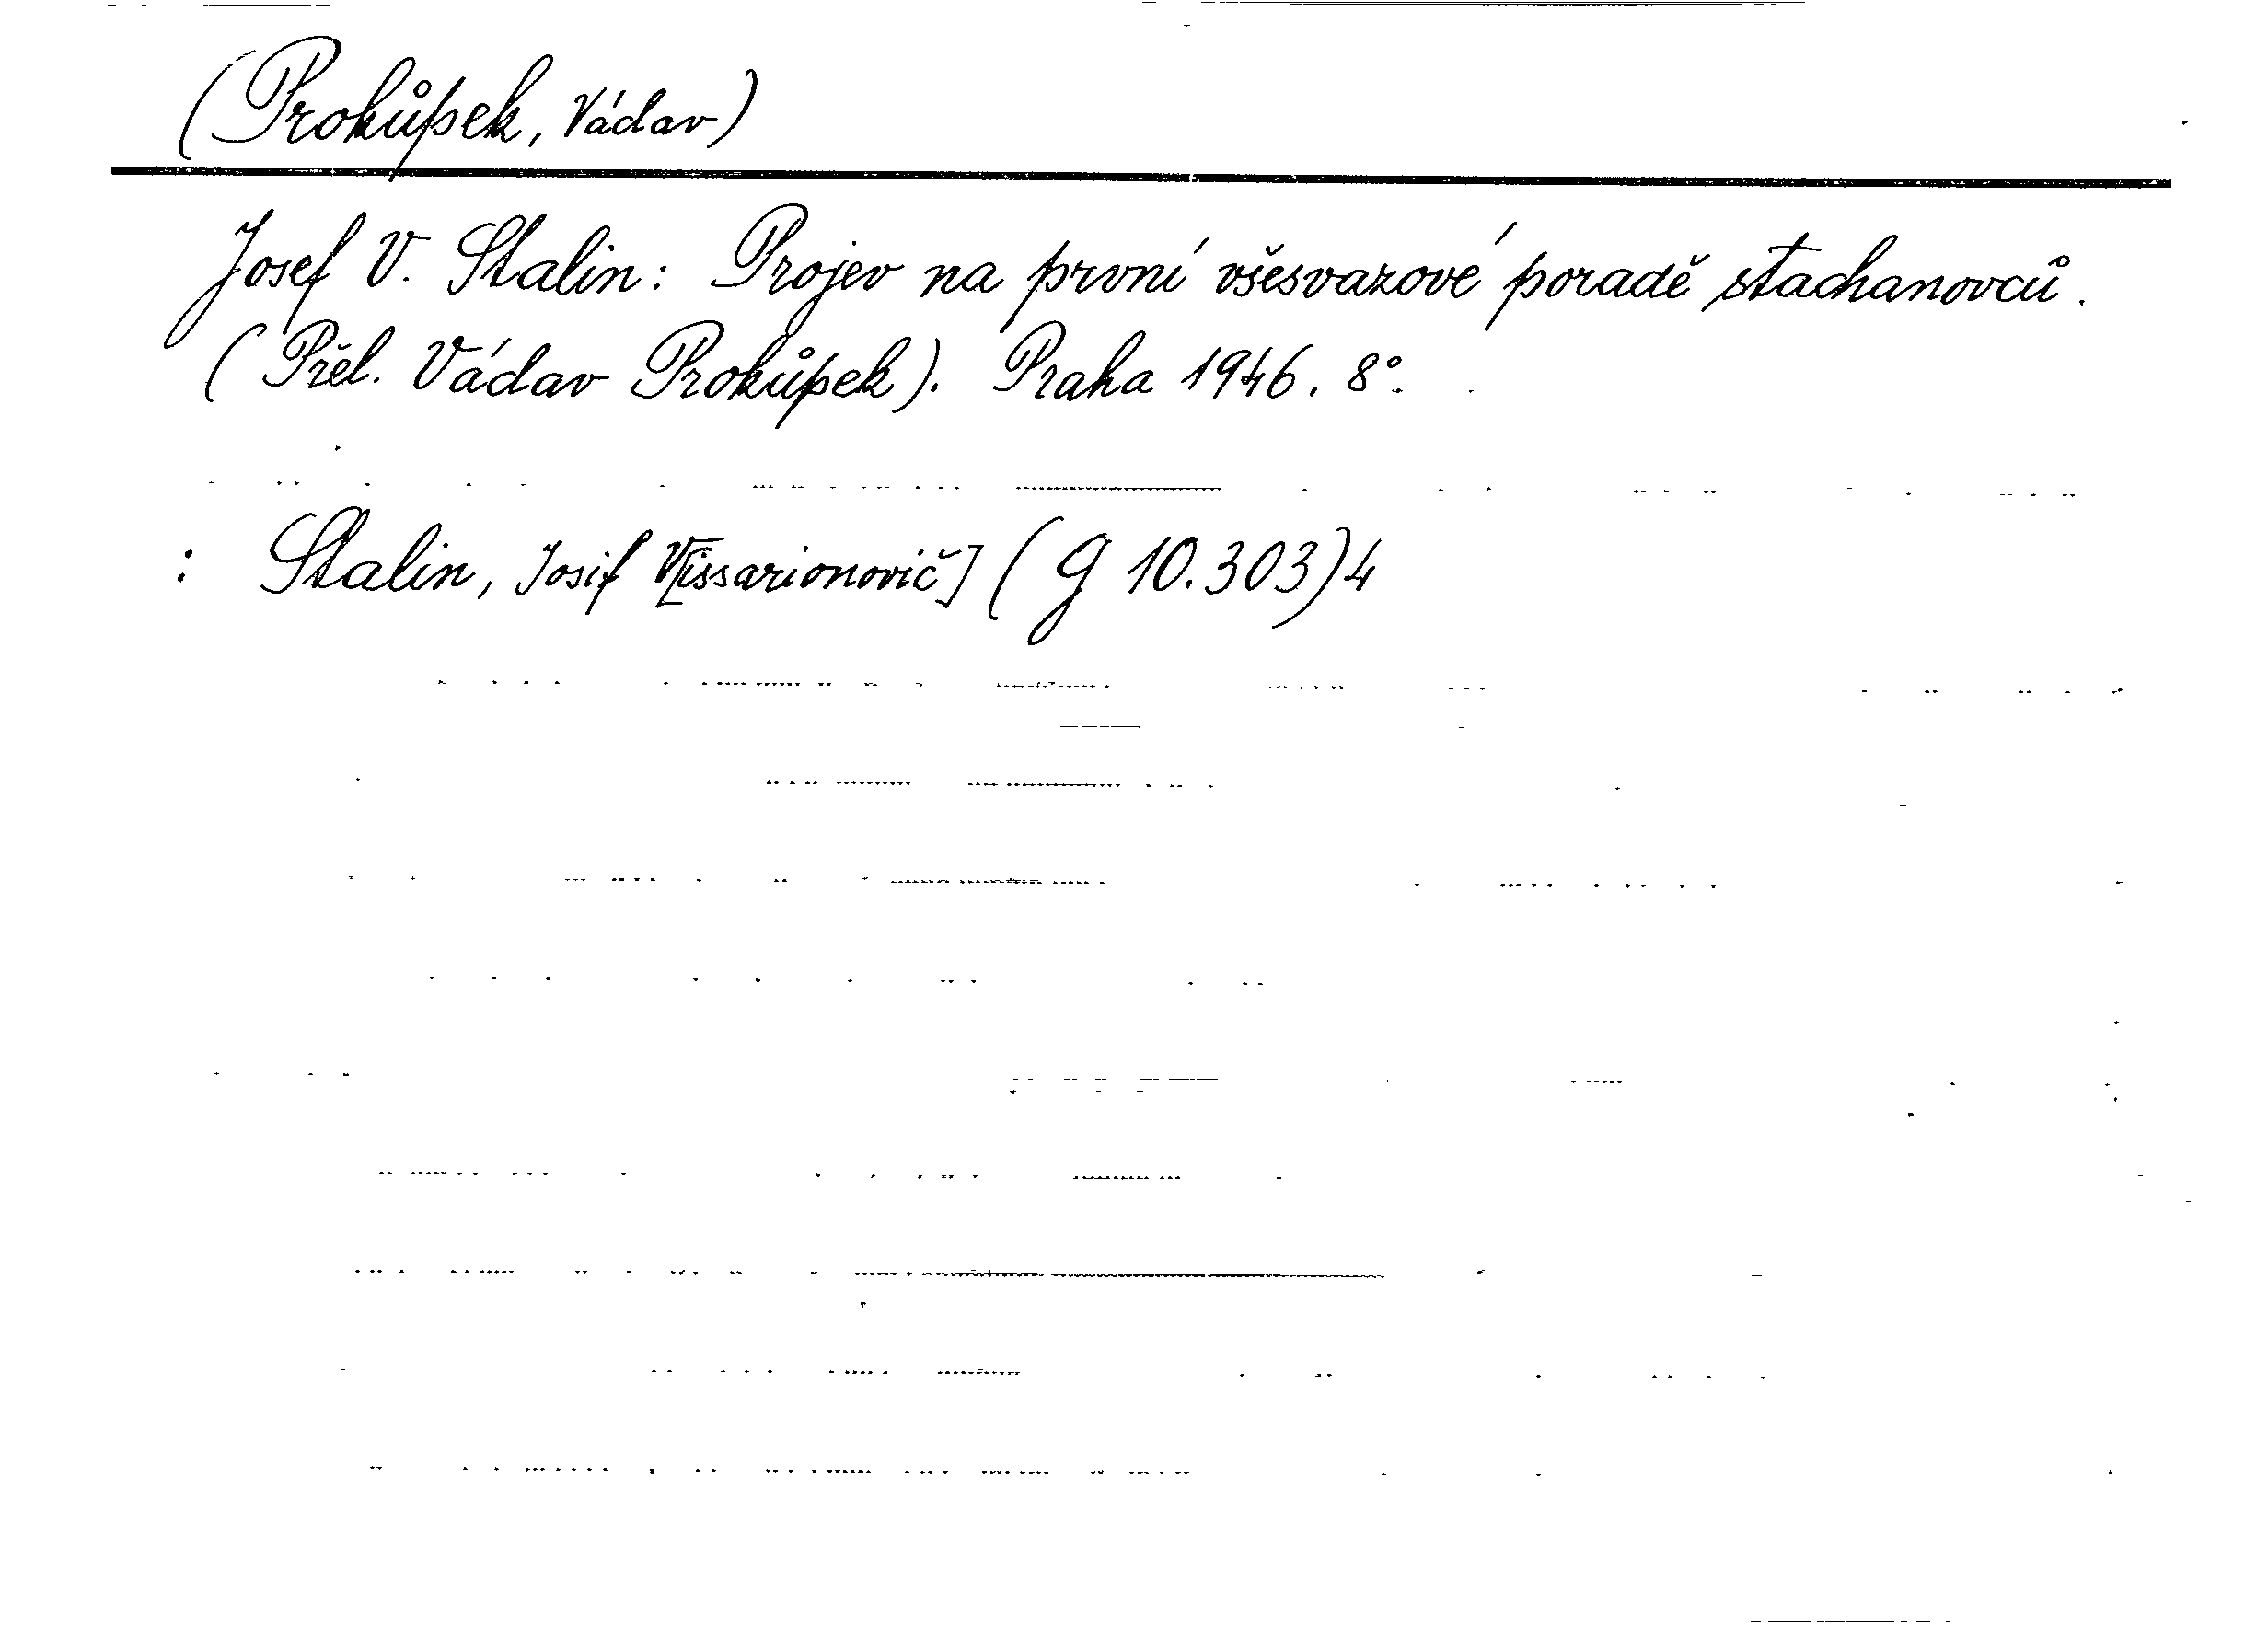 (Prokůpek, Václav)
Josef V. Stalin: Projev na první všesvazové poradě stachanovců.
(Přel. Václav Prokůpek). Praha 1946. 8°.
: Stalin, Josif V[issarionovič] (G 10.303)4